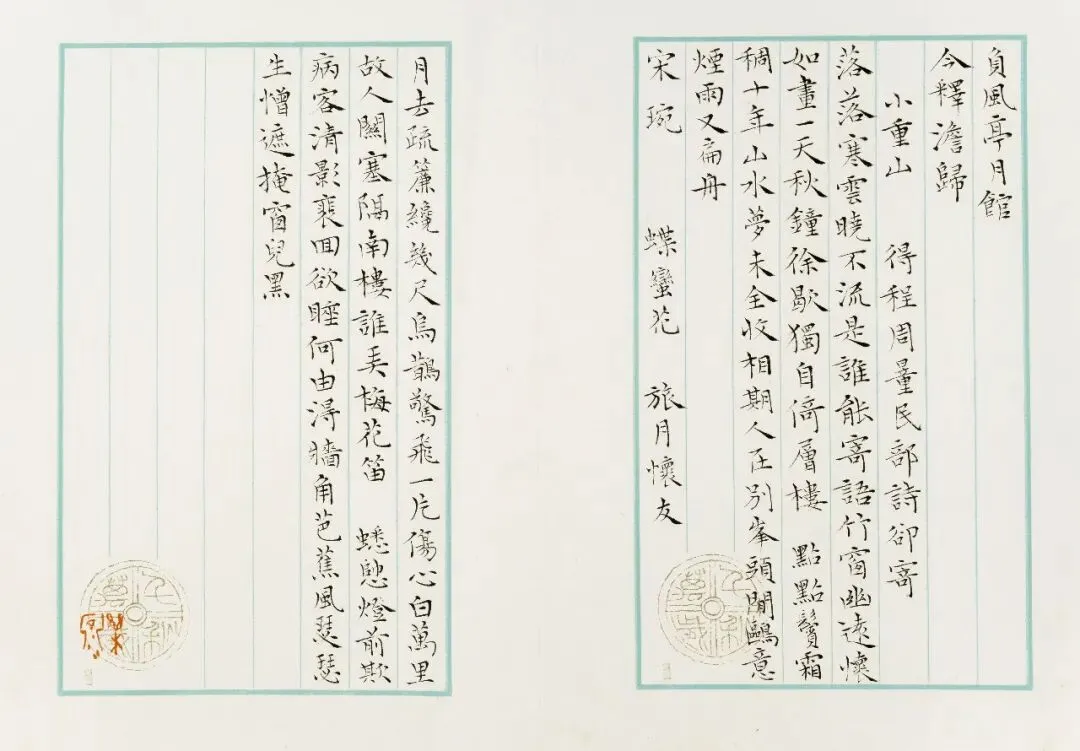 負風亭月館
今釋澹歸
小重山　得程周量民部詩卻寄
落落寒雲曉不流是誰能寄語竹窗幽遠懷
如畫一天秋鐘徐歇獨自倚層樓　點點鬢霜
稠十年山水夢未全收相期人在別峯頭閒鷗意
煙雨又扁舟
宋琬　蝶戀花　旅月懷友
月去疏簾纔幾尺烏鵲驚飛一片傷心白萬里
故人關塞隔南樓誰弄梅花笛　蟋蟀燈前欺
病客清影裵回欲睡何由得牆角芭蕉風瑟瑟
生憎遮掩窗兒黑